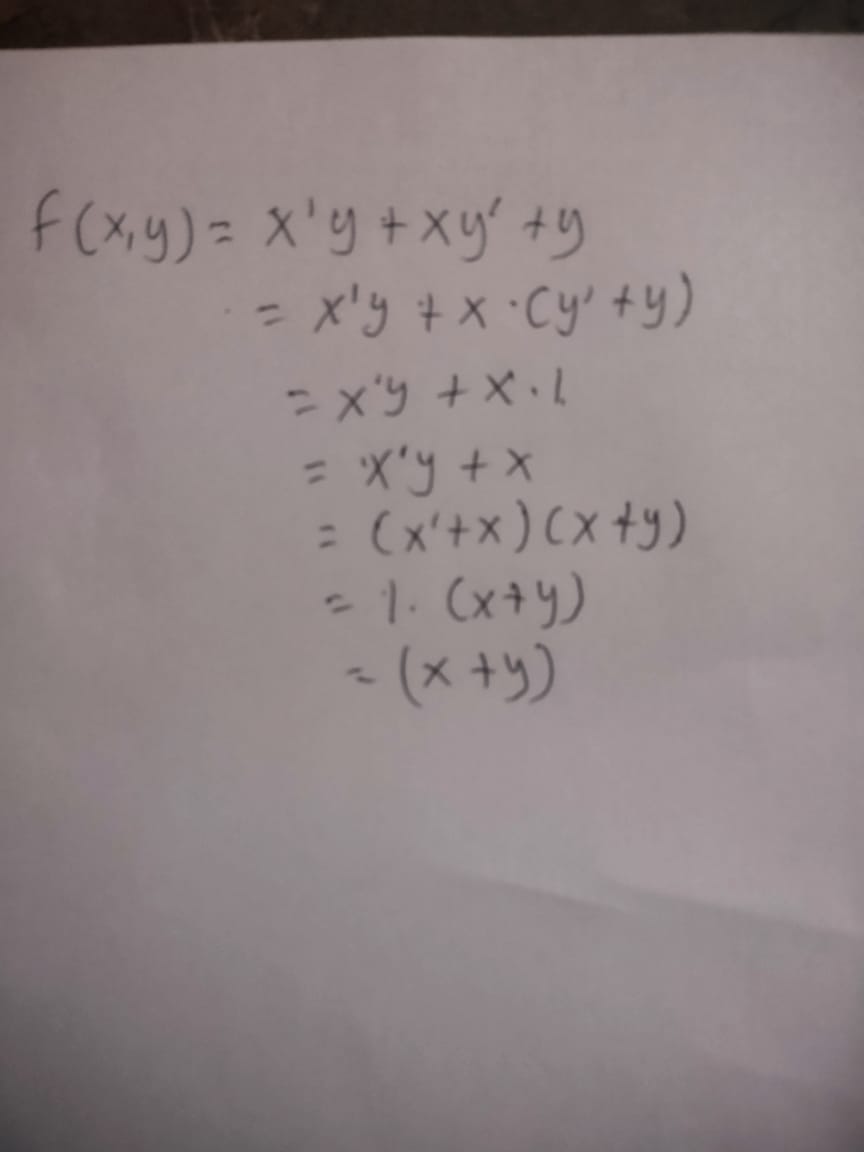 f(x,y) = x'y + xy' + y
= x'y + x · (y' + y)
= x'y + x · 1
= x'y + x
= (x' + x) (x + y)
= 1 · (x + y)
= (x + y)